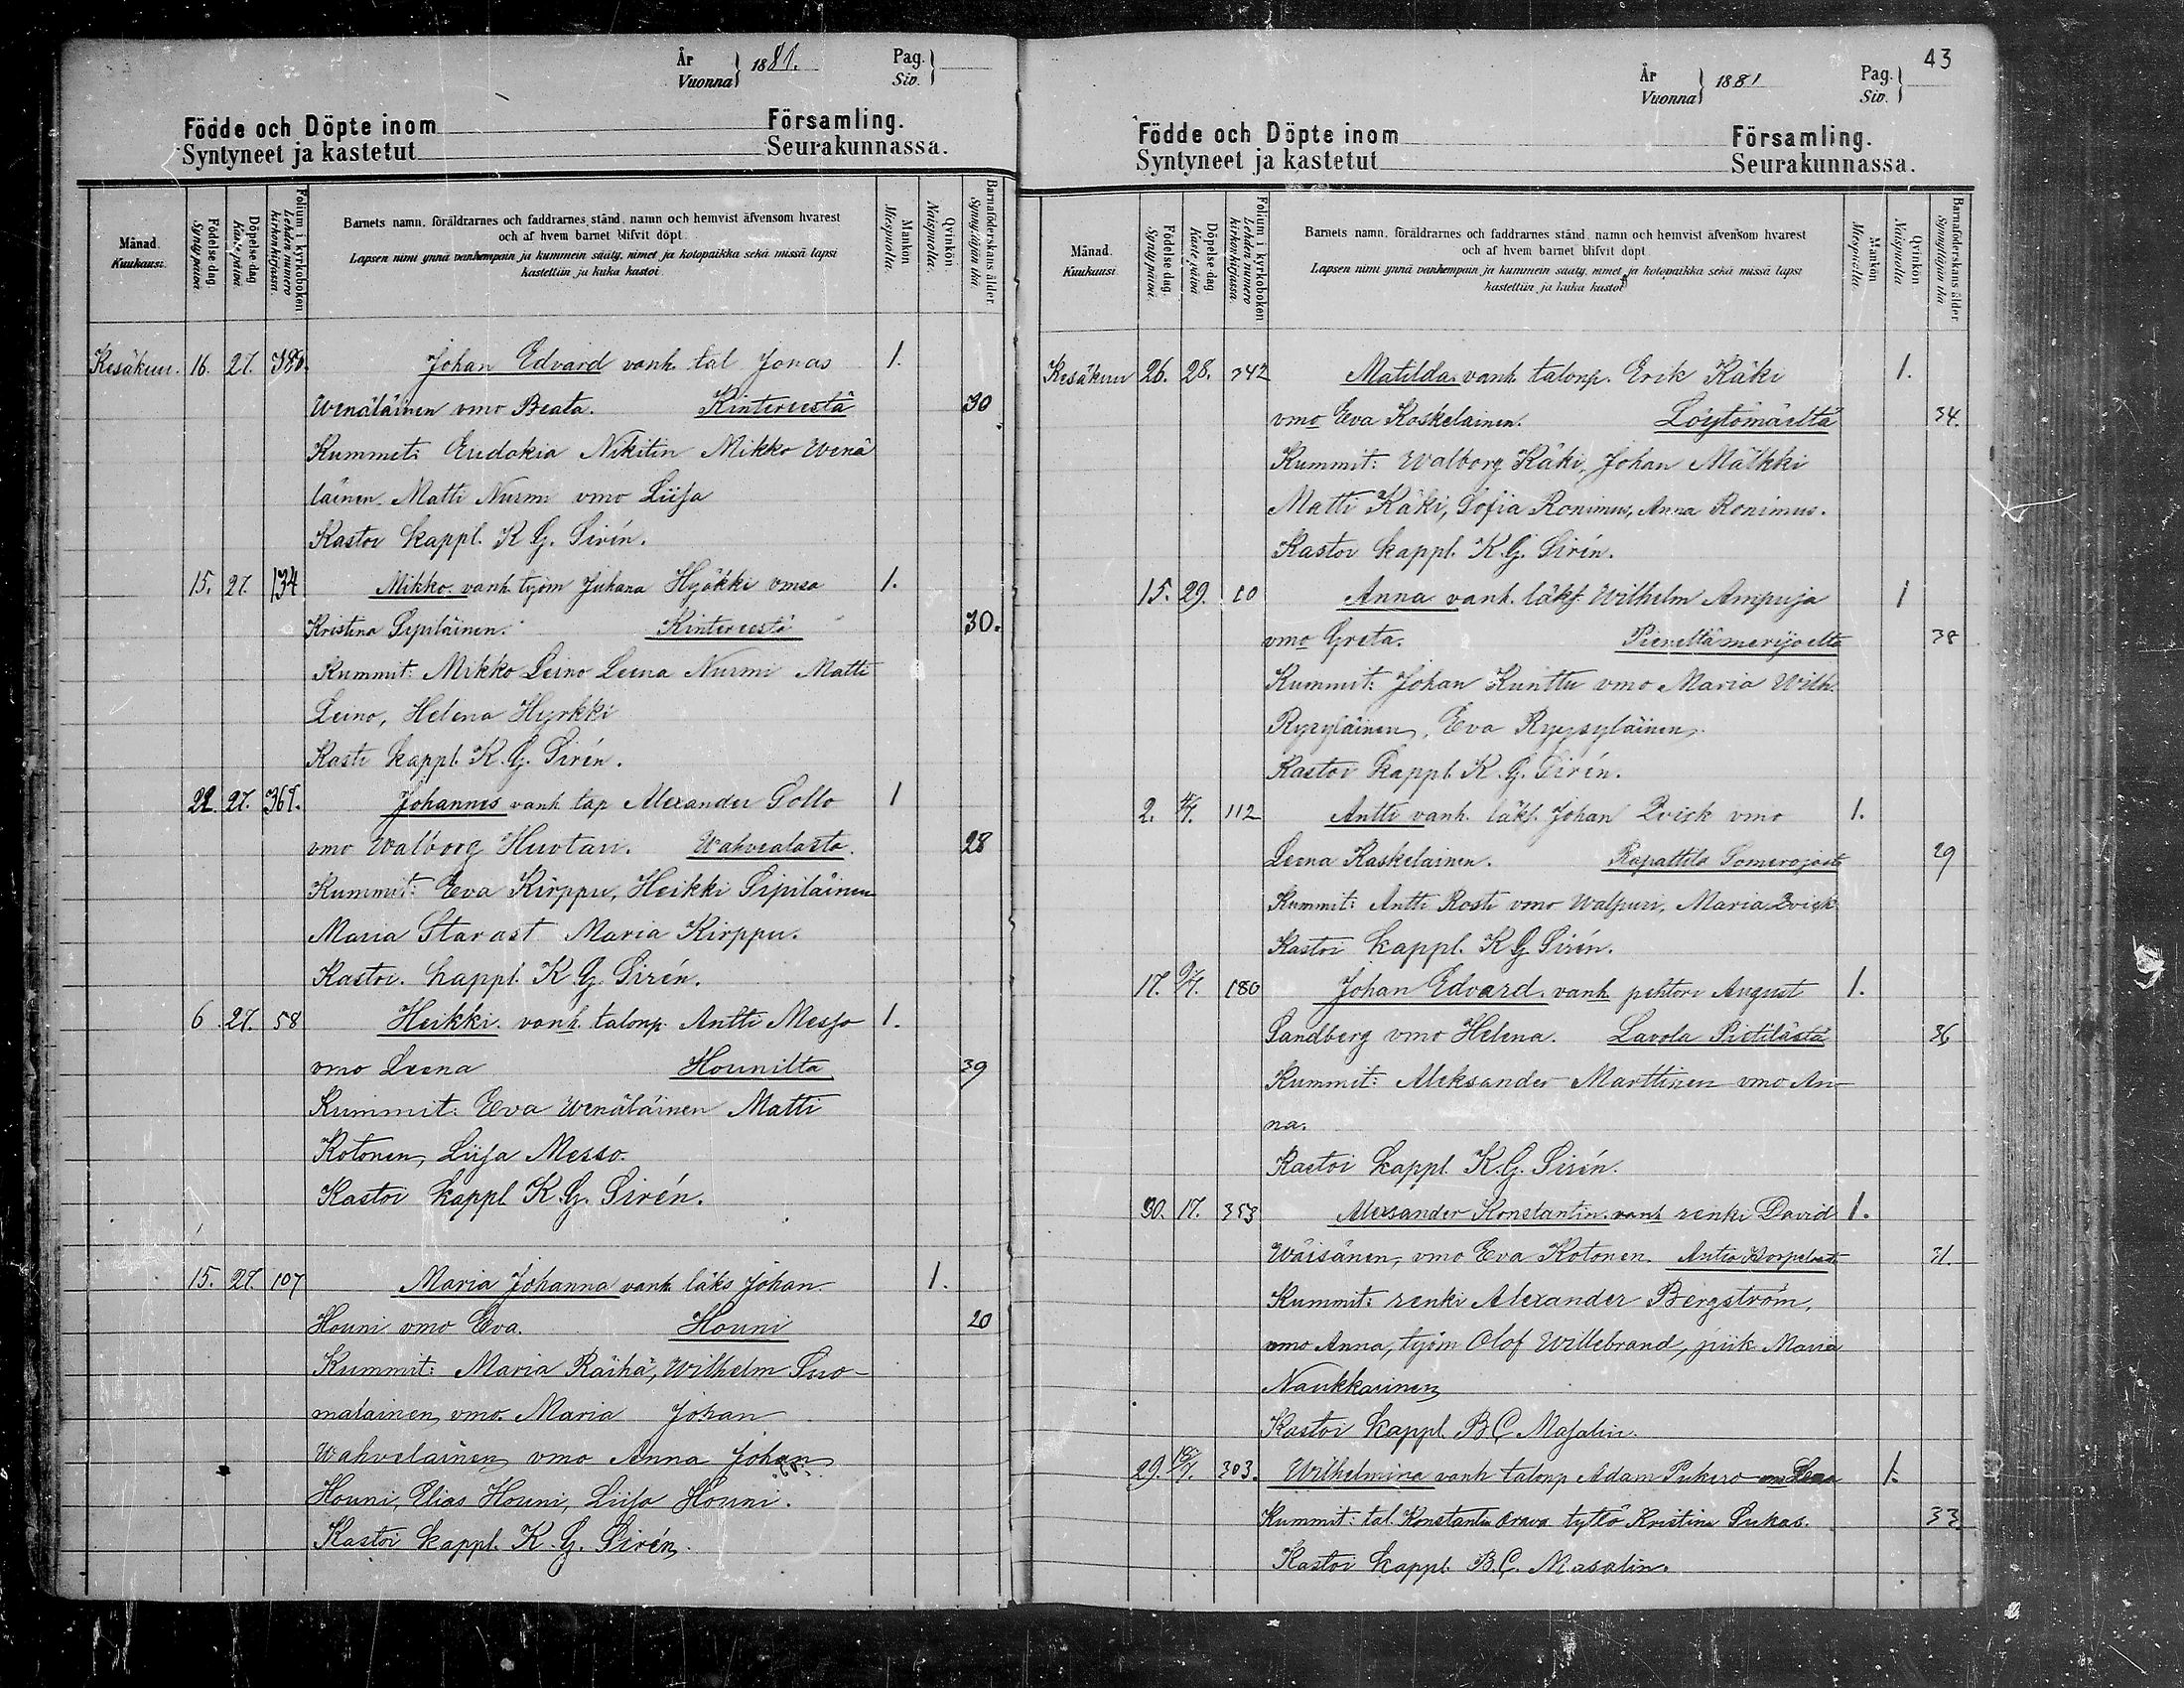 År
Vuonna
1881.
Pag.
Siv.
Födde och Döpte inom Församling.
Syntyneet ja kastetut Seurakunnassa.
Månad.
Kuukausi.
Födelse dag.
Synty päivä.
Döpelse dag
Kaste päivä.
Folium i kyrkoboken
Lehden numero
kirkon kirjassa.
Barnets namn, föräldrarnes och faddrarnes stånd, namn och hemvist äfvensom hvarest
och af hvem barnet blifvit döpt.
Lapsen nimi ynnä vanhempain ja kummein sääty, nimet ja kotopaikka sekä missä lapsi
kastettiin ja kuka kastoi.
Mankön
Miespuolia.
Qvinkön
Naispuolia.
Barnaföderskans ålder.
Synnyttäjän ikä.
Kesäkuu. 16. 27. 380. Johan Edvard vanh. tal Jonas 1.
Wenäläinen vmo Beata. Kintereestä 30
Kummit: Eudokia Nikitin Mikko Wenä
läinen. Matti Nurmi vmo Liisa
Kastoi kappl. K G. Sirén.
15. 27. 134 Mikko vanh. työm Juhana Hyökki vmso 1.
Kristina Sipiläinen. Kintereestä 30.
Kummit: Mikko Leino Leena Nurmi Matti
Leino, Helena Hyrkki
Kasti kappl. K. G. Sirén.
22. 27. 361. Johannes vanh. tap Alexander Sollo 1
vmo Walborg Huotari. Wahvialasta. 28
Kummit: Eva Kirppu, Heikki Sipiläinen
Maria Starast Maria Kirppu.
Kastoi. kappl. K. G. Sirén.
6. 27. 58 Heikki. vanh. talonp. Antti Messo 1.
vmo Leena Hounilta 39
Kummit: Eva Wenäläinen Matti
Kotonen, Liisa Messo.
Kastoi kappl K. G. Sirén.
15. 27. 107 Maria Johanna vanh läks Johan 1.
Houni vmo Eva. Houni 20
Kummit: Maria Räihä, Wilhelm Suo-
malainen, vmo. Maria Johan
Wahvelainen vmo Anna Johan
Houni, Elias Houni, Liisa Houni.
Kastoi kappl. K. G. Sirén.
43
År
Vuonna
1881
Pag.
Siv.
Födde och Döpte inom Församling.
Syntyneet ja kastetut Seurakunnassa.
Månad.
Kuukausi.
Födelse dag.
Synty päivä.
Döpelse dag
Kaste päivä.
Folium i kyrkoboken
Lehden numero
kirkon kirjassa.
Barnets namn, föräldrarnes och faddrarnes stånd, namn och hemvist äfvensom hvarest
och af hvem barnet blifvit döpt.
Lapsen nimi ynnä vanhempain ja kummein sääty, nimet ja kotopaikka sekä missä lapsi
kastettiin ja kuka kastoi
Mankön
Miespuolia.
Qvinkön
Naispuolia.
Barnaföderskans ålder.
Synnyttäjän ikä
Kesäkuu 26. 28. 342 Matilda. vanh. talonp. Erik Käki 1.
vmo Eva Koskelainen. Löytömäeltä 34.
Kummit: Walborg Käki, Johan Mälkki
Matti Käki, Sofia Ronimus, Anna Ronimus.
Kastoi kappl. K. G. Sirén.
15. 29. 10 Anna vanh. läks. Wilhelm Ampuja 1
vmo Greta. Pieneltämerijoelta 38
Kummit: Johan Kunttu vmo Maria Wilh.
Rysyläinen, Eva Ryysyläinen,
Kastoi kappl. K. G. Sirén.
2. 4/7. 112 Antti vanh. läks. Johan Qvick vmo 1.
Leena Kaskelainen. Rapattila Someroja 29
Kummit: Antti Rosti vmo Walpuri, Maria Qvick
Kastoi kappl. K G Sirén.
17. 9/7. 180 Johan Edvard. vanh. pehtori August 1.
Sandberg vmo Helena. Lavola Pietilästä 36
Kummit: Aleksander Marttinen vmo An-
na.
Kastoi kappl. K. G. Sirén.
30. 17. 353 Alexander Konstantin. vanh renki David 1.
Wäisänen, vmo Eva Kotonen. Autio Korpelast 31.
Kummit: renki Alexander Bergström,
vmo Anna, työm Olof Willebrand, piik Maria
Naukkarinen
Kastoi kappl. B C Masalin.
29. 303. Wilhelmina vanh talonp Adam Pukero vm Leena 1.
Kummit: tal. Konstantin Orava tyttö Kristina Pukas. 33
Kastoi kappl. B. C. Masalin.